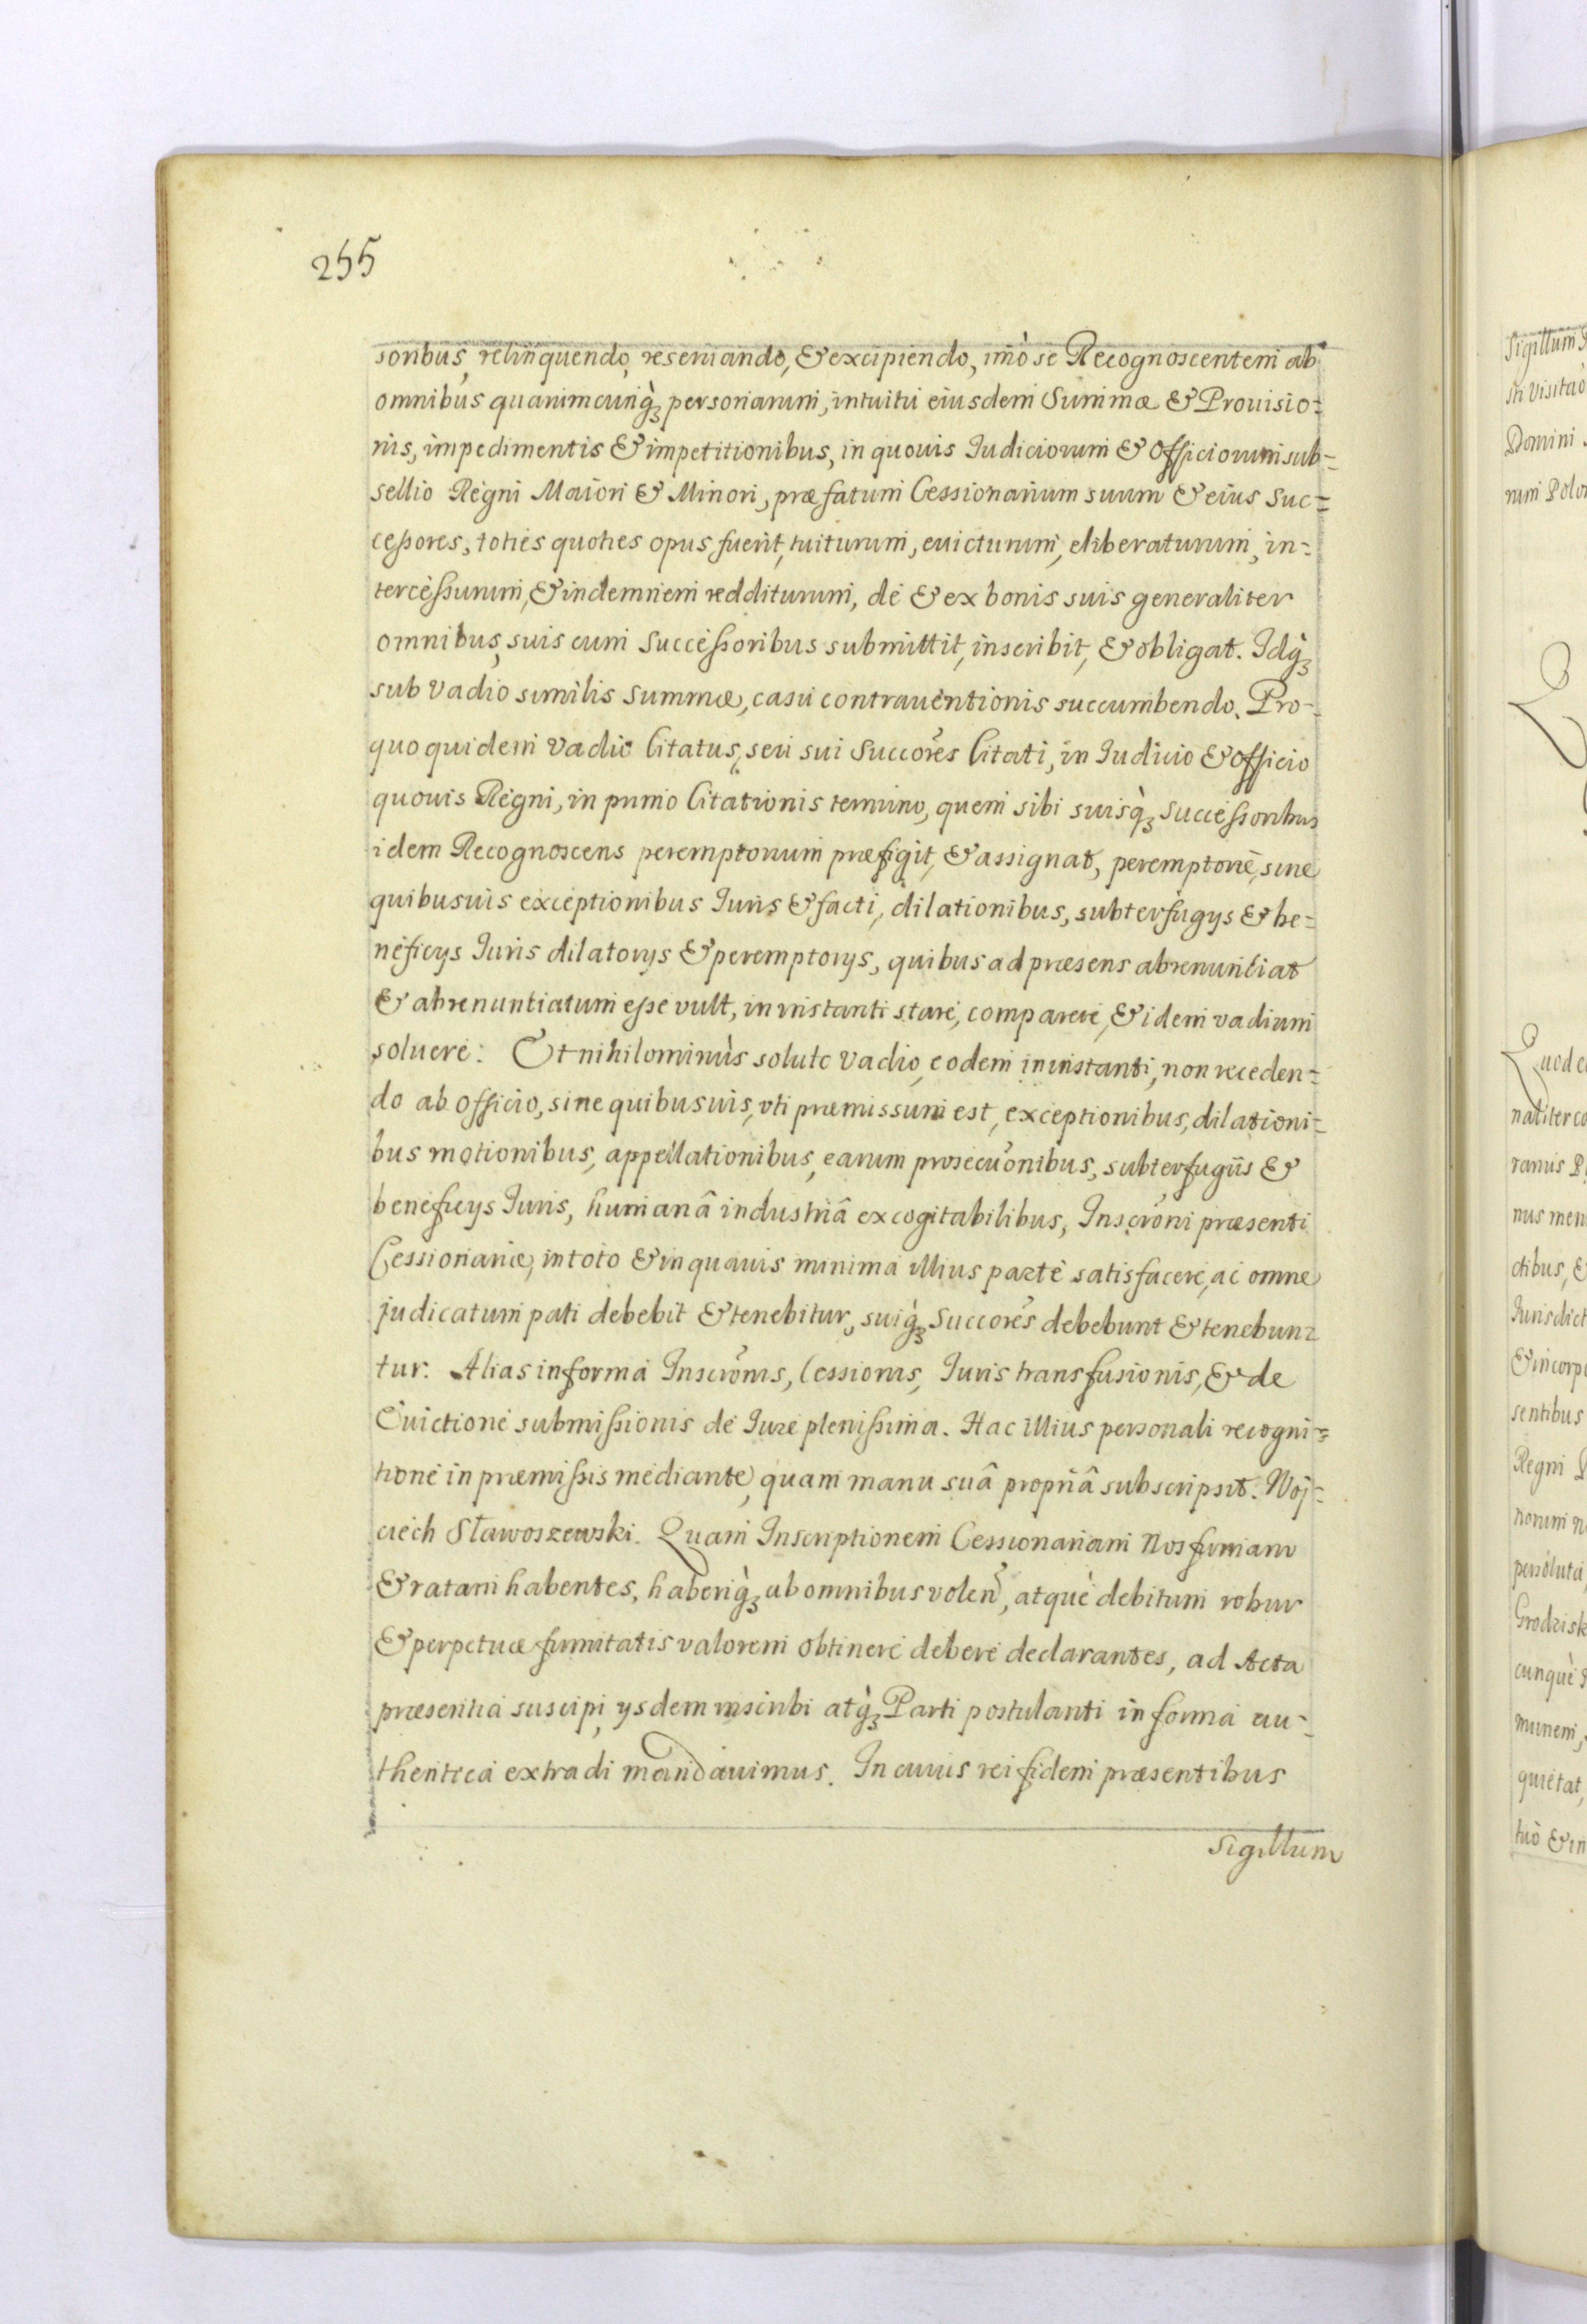 255
soribus, relinquendo, reseruando, & excipiendo, imò se Recognoscentem ab
omnibus quarumcunq̀ȝ personarum, intuitu eiusdem Summæ & Prouisio=
nis, impedimentis & impetitionibus, in quouis Iudiciorum & Officiorum sub=
sellio Regni Maiori & Minori, præfatum Cessionarium suum & eius Suc=
cessores, toties quoties opus fuerit, tuiturum, euicturum, eliberaturum, in=
tercessurum, & indemnem redditurum, de & ex bonis suis generaliter
omnibus, suis cum Successoribus submittit, inscribit, & obligat. Idq̀ȝ
sub Vadio similis Summæ, casu contrauentionis succumbendo. Pro-
quo quidem Vadio Citatus, seu sui Succores Citati, in Iudicio & Officio
quouis Regni, in primo Citationis termino, quem sibi suisq̀ȝ Successoribus
idem Recognoscens peremptorium præfigit, & assignat, peremptoriè, sine
quibusuis exceptionibus Iuris & facti, dilationibus, subterfugys & be=
neficys Iuris dilatorys & peremptorys, quibus ad præsens abrenuntiat
& abrenuntiatum esse vult, in instanti stare, comparere, & idem vadium
soluere: Et nihilominùs soluto Vadio, eodem in instanti, non receden=
do ab officio, sine quibusuis, vti præmissum est, exceptionibus, dilationi=
bus motionibus, appellationibus, earum prosecuonibus, subterfugiis &
beneficys Iuris, humanâ industriâ excogitabilibus, Inscroni præsenti
Cessionariæ, in toto & in quauis minima illius parte satisfacere, ac omne
judicatum pati debebit & tenebitur, suiq̀ȝ Succores debebunt & tenebun=
tur. Alias in forma Inscronis, Cessionis, Iuris transfusionis, & de
Euictione submissionis de Iure plenissima. Hac illius personali recogni=
tione in præmissis mediante, quam manu suâ propriâ subscripsit. Woj=
ciech Sławoszewski. Quam Inscriptionem Cessionariam Nos firmam
& ratam habentes, haberiq̀ȝ ab omnibus volen, atquè debitum robur
& perpetuæ firmitatis valorem obtinere debere declarantes, ad Acta
præsentia suscipi, ysdem inscribi atq̀ȝ Parti postulanti in forma au=
thentica extradi mandauimus. In cuius rei fidem præsentibus
Sigillum
Sigillum
Domini
Quod e
natiter co
ramis P
nus men
ctibus, &
Iurisdict
& incorp
sentibus
Regni
persoluta
Grodzisk
cunquè
munem,
quietat,
tuò & in